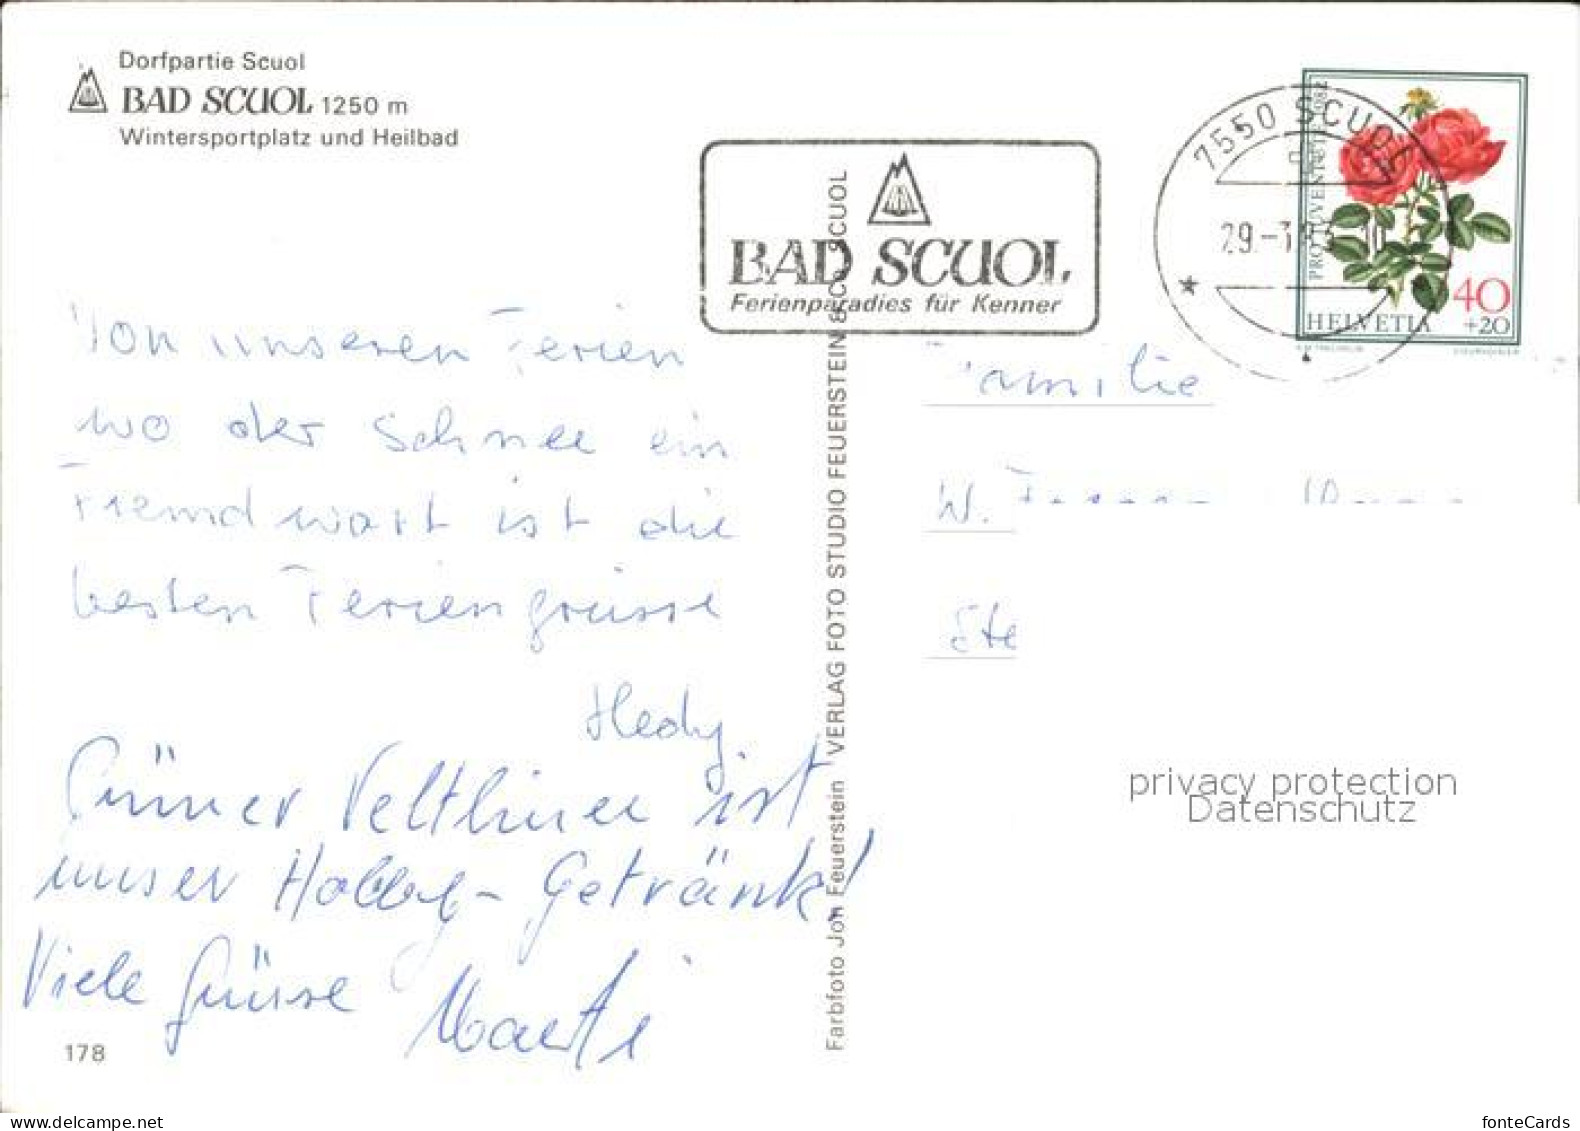 Dorfpartie Scuol
BAD SCUOL 1250 m
Wintersportplatz und Heilbad
BAD SCUOL
Ferienparadies für Kenner
7550 SCUOL
29.
PRO JUVENTUTE 1982
40
+20
HELVETIA
Von unseren Ferien
wo der Schnee ein
Fremdwort ist die
besten Feriengrüsse
Hedy
Grüner Veltliner ist
unser Hobby-Getränk!
Viele Grüsse Maerti
178
Farbfoto Jon Feuerstein VERLAG FOTO STUDIO FEUERSTEIN & CO SCUOL
Familie
W.
Ste
privacy protection
Datenschutz
fonteCards